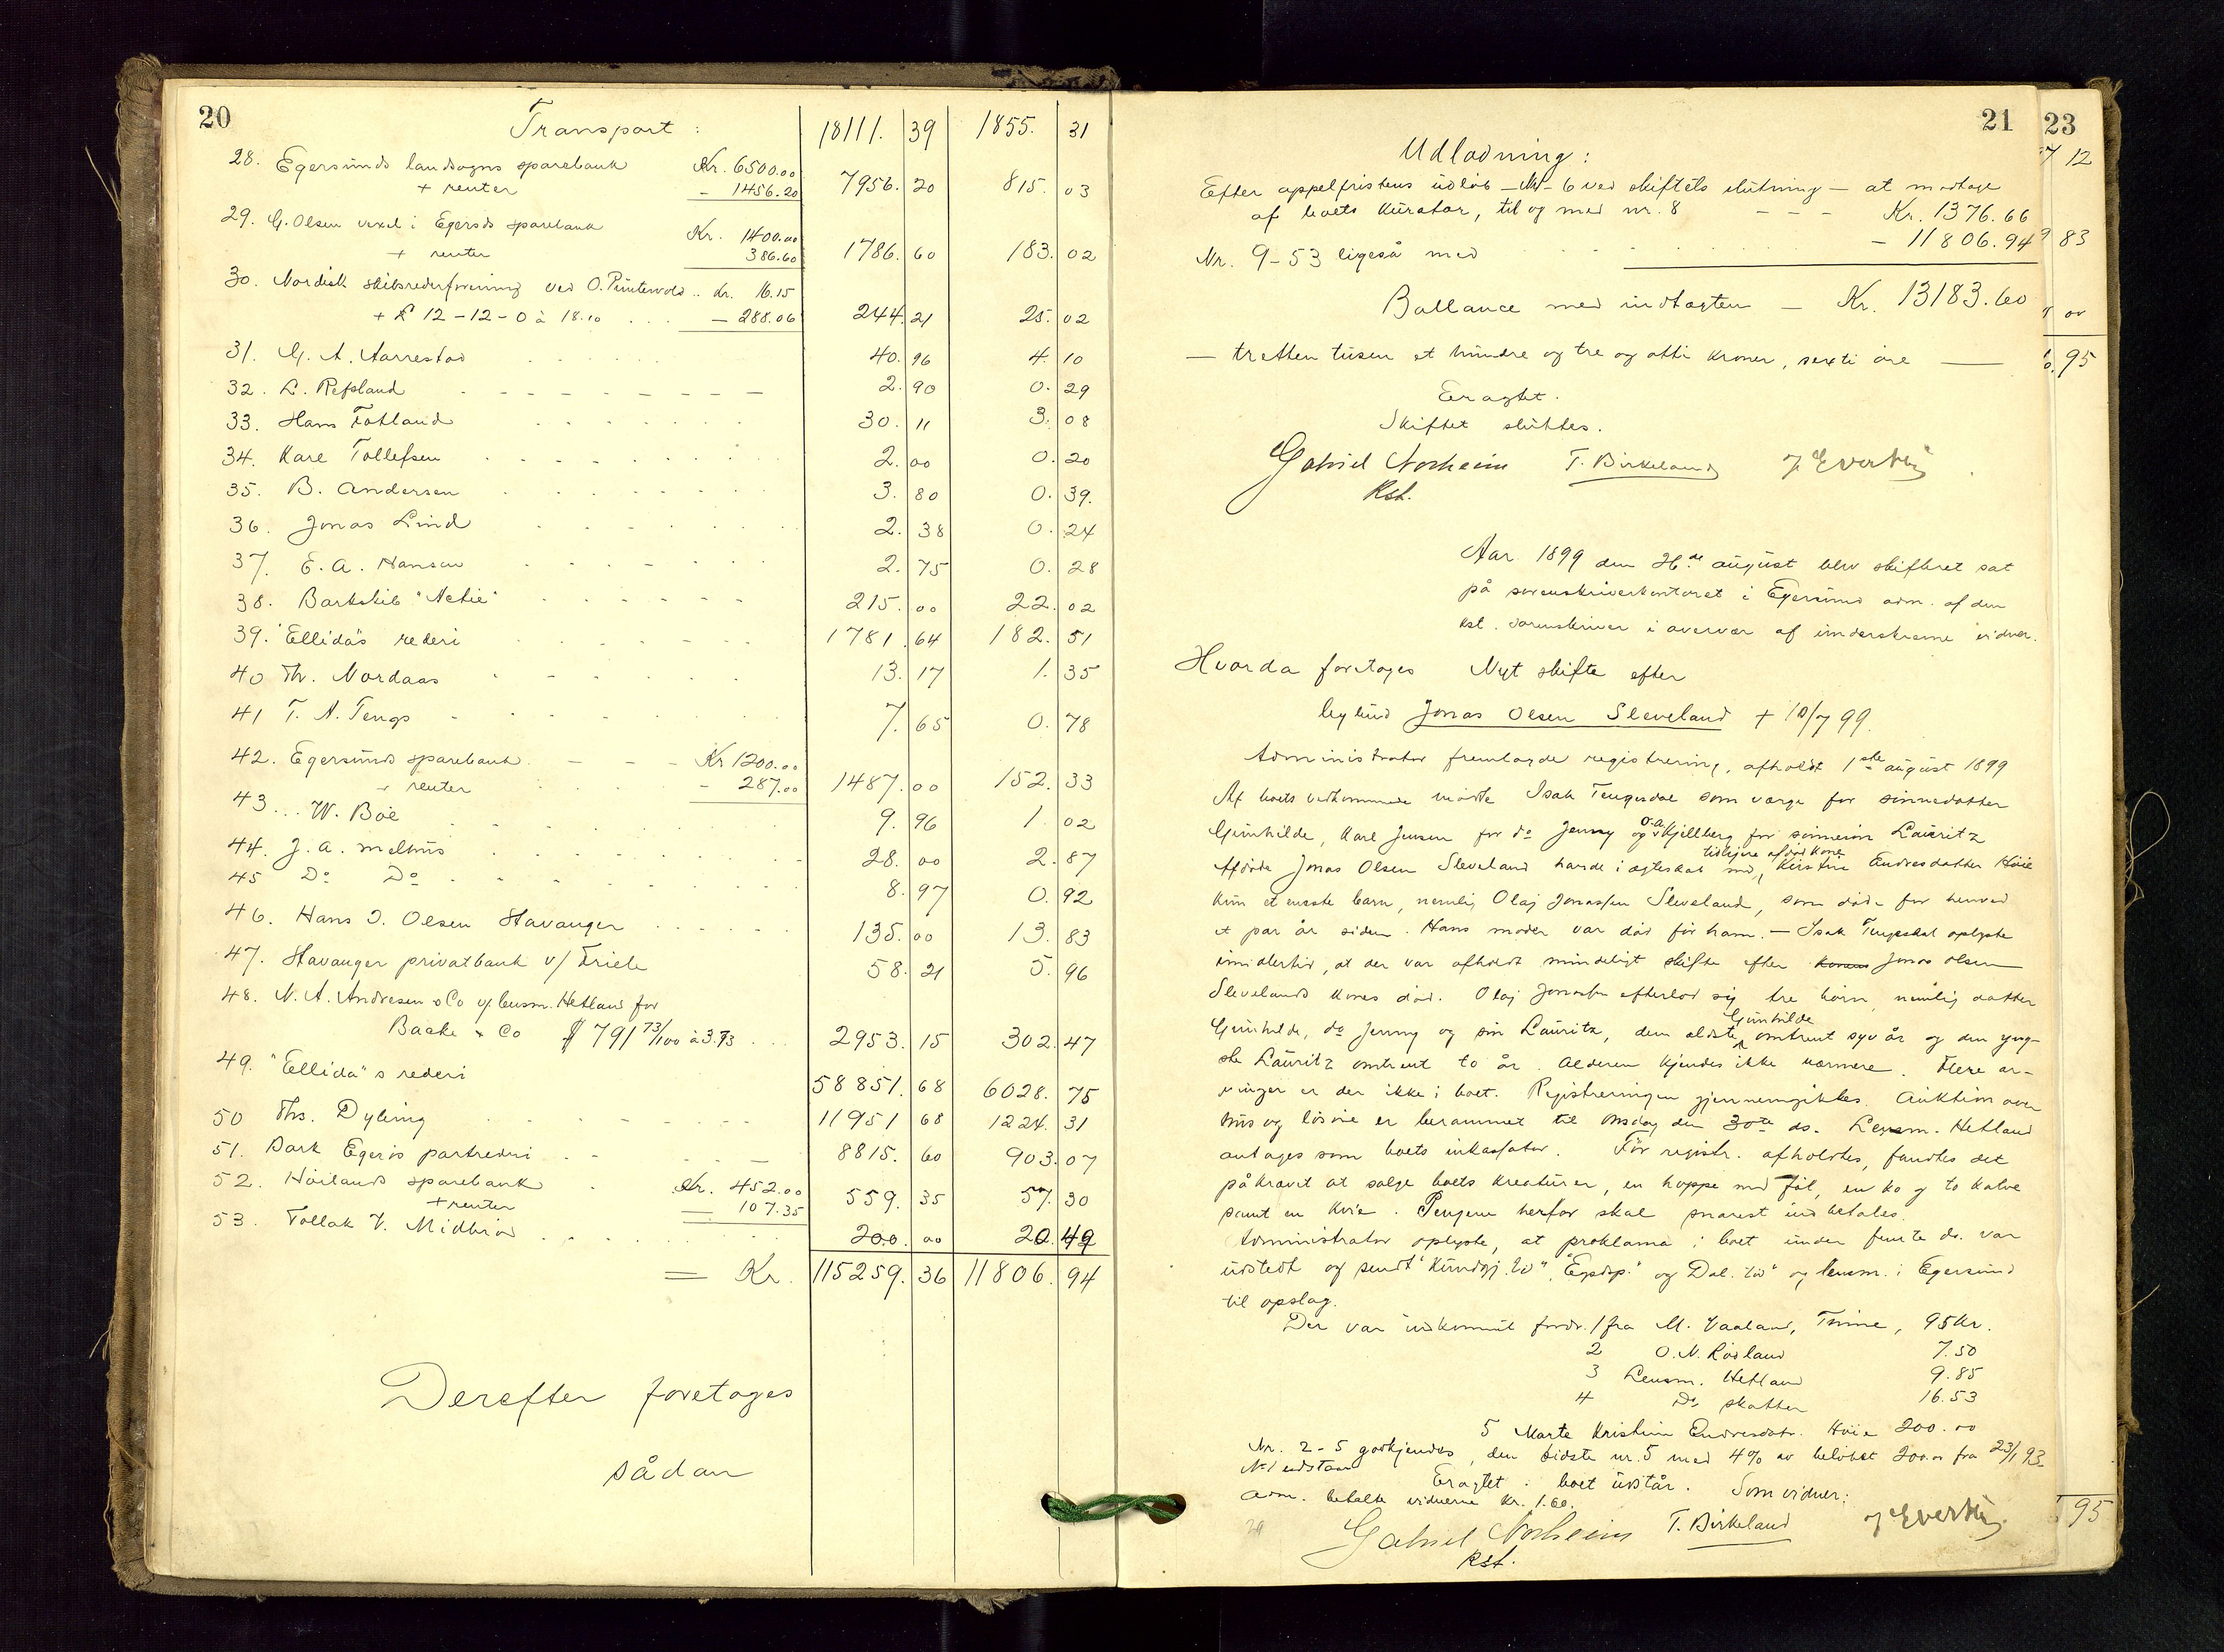 20
Transport : 18111. 39 1855. 31
28. Egersunds landsogns sparebank Kr. 6500.00
+ renter - 1456.20 7956. 20 815. 03
29. G. Olsen vexel i Egersds sparebank Kr. 1400.00
+ renter 386.60 1786. 60 183. 02
30. Nordisk skibsrederforening ved O. Puntervold .. Kr. 16.15
+ £ 12-12-0 à 18.10 ... - 288.06 244. 21 25. 02
31. G. A. Aarrestad 40. 96 4. 10
32. L. Refsland 2. 90 0. 29
33. Hans Fotland 30. 11 3. 08
34. Karl Tollefsen 2. 00 0. 20
35. B. Andersen 3. 80 0. 39.
36. Jonas Lind 2. 38 0. 24
37. E. A. Hansen 2. 75 0. 28
38. Barkskib "Netie" 215. 00 22. 02
39. "Ellida"s rederi 1781. 64 182. 51
40 Th. Nordaas 13. 17 1. 35
41 T. A. Tengs 7. 65 0. 78
42. Egersunds sparebank - - - Kr 1200.00
+ renter - 287.00 1487. 00 152. 33
43... W. Böe 9. 96 1. 02
44. J. A. Melhus 28. 00 2. 87
45 Do Do 8. 97 0. 92
46. Hans I. Olsen Stavanger 135. 00 13. 83
47. Stavanger privatbank v/ Friele 58. 21 5. 96
48. N. A. Andresen & Co v/ lensm. Hetland for
Backe & Co $ 791 73/100 à 3.73 ... 2953. 15 302. 47
49. "Ellida"s rederi 58851. 68 6028. 75
50 Ths. Dyring 11951 68 1224. 31
51. Bark Egerös partrederi 8815. 60 903. 07
52. Höilands sparebank Kr. 452.00
+ renter 107.35 559. 35 57. 30
53. Tollak V. Midbröd 200. 00 20. 49
= Kr. 115259. 36 11806. 94
Derefter foretoges
sådan
21
Udlodning :
Efter appelfristens udløb - Nr - 6 ved skiftets slutning - at modtage
af boets kurator, til og med nr. 8 - - - Kr. 1376.66
Nr. 9-53 ligeså med - 11806.94
Ballance med indtægten - Kr. 13183.60
- tretten tusen et hundre og tre og otti kroner, sexti öre -
Eragtet.
Skiftet sluttes.
Gabriel Norheim T. Birkeland J. Evertsen
Kst.
Aar 1899 den 26de august blev skifteret sat
på sorenskriverkontoret i Egersund adm. af den
kst. sorenskriver i overvær af underskrevne vidner.
Hvorda foretoges Nyt skifte efter
leylend Jonas Olsen Sleveland + 10/7 99.
Administrator fremlagde registrering, afholdt 1ste august 1899
Af boets vedkommende mödte Isak Tengesdal som værge for sönnedatter
Gunhilde, Karl Jensen for do Jenny og O. A. Kjellberg for sönnesön Lauritz
Afdöde Jonas Olsen Sleveland havde i ægteskab med, tidligere afdöd kone Kirstine Endresdatter Höie
kun et eneste barn, nemlig Olaj Jonassen Sleveland, som döde for henved
et par år siden. Hans moder var död för ham. - Isak Tengesdal oplyste
imidlertid, at der var afholdt mindeligt skifte efter konens Jonas Olsen
Slevelands kones död. Olaj Jonassen efterlod sig tre börn, nemlig datter
Gunhilde, do Jenny og sön Lauritz, den eldste Gunhilde omtrent syv år og den yng-
ste Lauritz omtrent to år. Alderen kjendes ikke nærmere. Flere ar-
vinger er der ikke i boet. Registreringen gjennemgikkes. Auktion over
hus og lösöre er berammet til onsdag den 30te ds. Lensm. Hetland
antages som boets inkassator. För registr. afholdtes, fandtes det
påkrævet at sælge boets kreaturer, en hoppe med föl, en ko og to kalve
samt en kvie. Pengene herfor skal snarest indbetales.
Administrator oplyste, at proklama i boet under femte ds. var
udstedt og sendt "Kundgj. tid", "Egdsp." og Dal. tid" og lensm. i Egersund
til opslag.
Der var indkommet fordr. 1 fra M. Vaaland, Time, 95 kr.
2 O. N. Rödland 7.50
3 Lensm. Hetland 9.85
4 Do skatter 16.53
5 Marte Kristine Endresdatr. Höie 200.00
Nr. 2-5 godkjendes, den sidste nr. 5 med 4% av belöbet 200.00 fra 23/1 93.
No 1 udstaar Eragtet: boet udstår. Som vidner:
Adm. betalte vidnerne kr. 1.60.
Gabriel Norheim T. Birkeland J. Evertsen
Kst.
23
7 12
9 83
00
6. 95
95